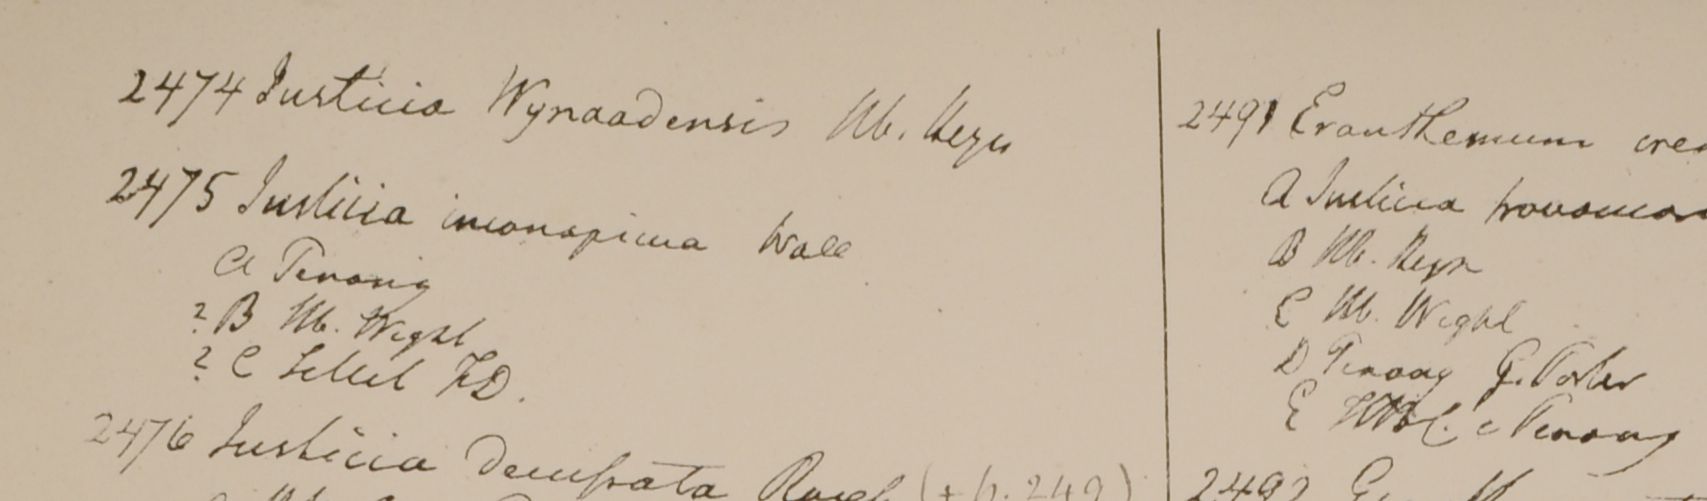 2474 Justicia Wynaadensis Hb. Heyn
2475 Justicia inconspicua Wall
A Penang
? B Hb. Wight
? C Sillet FD.
2476 Justicia decussata Roxb (+ p. 249)
2491 Eranthemum cre
A Justicia
B Hb. Heyn
C Hb. Wight
D Penang G. Porter
E HBC e Penang
2492